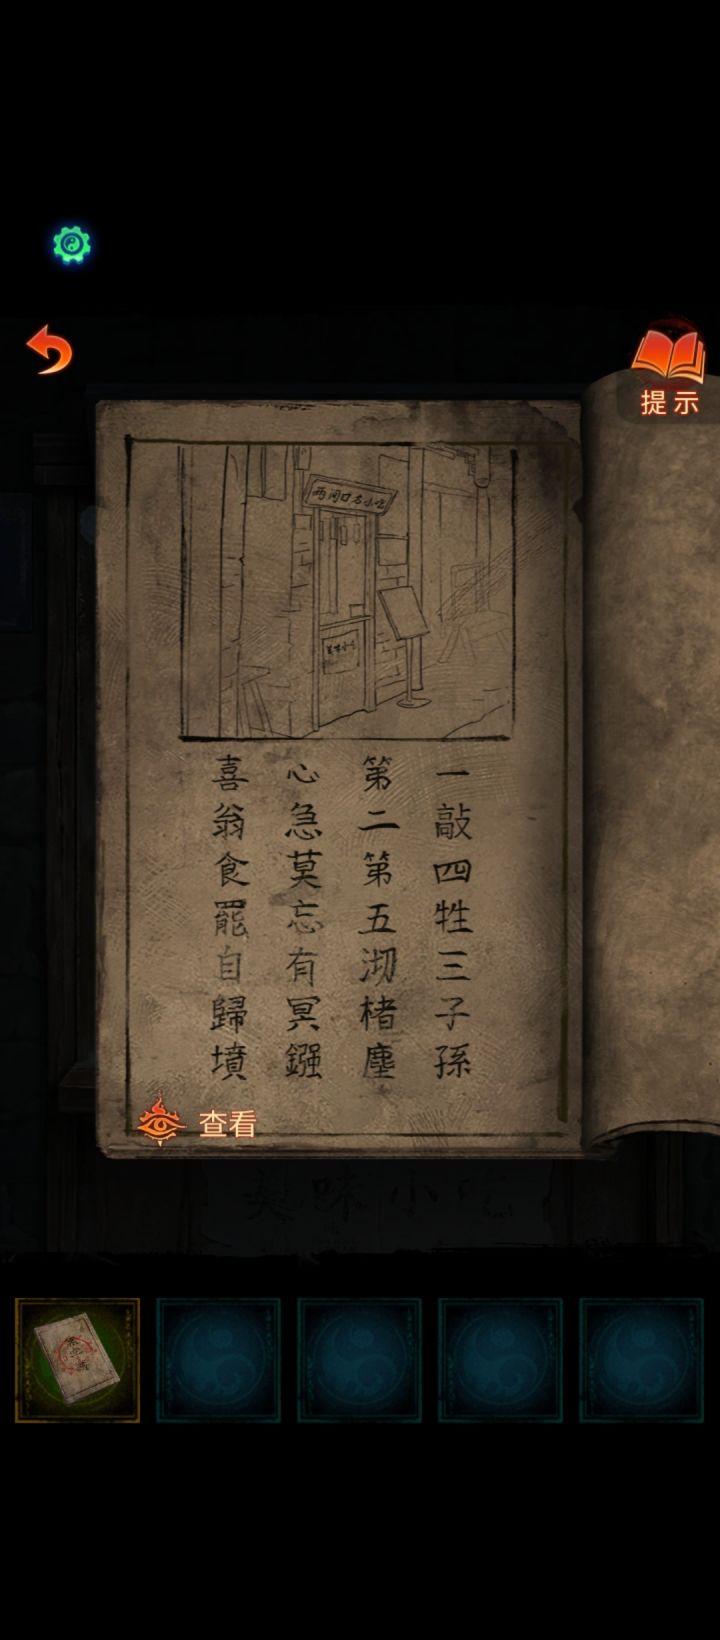 提示
两间口名小吃
美味小吃
一敲四牲三子孫
第二第五沏楮塵
心急莫忘有冥鏹
喜翁食罷自歸墳
查看
美味小吃